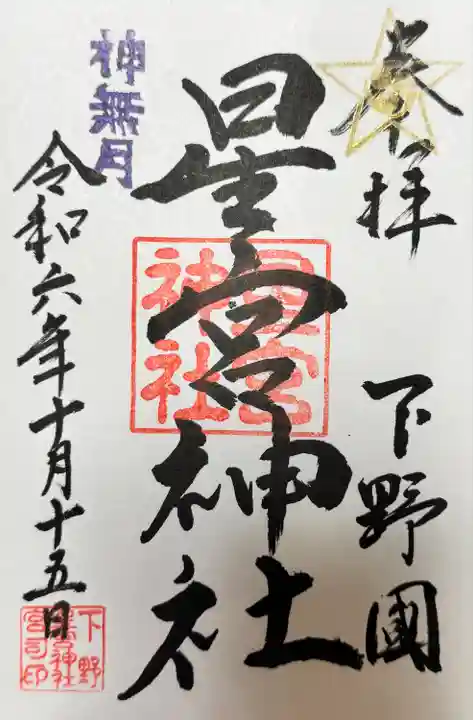 奉拝
下野國
星宮神社
星宮
神社
神無月
令和六年十月十五日
下野
星宮神社
宮司印